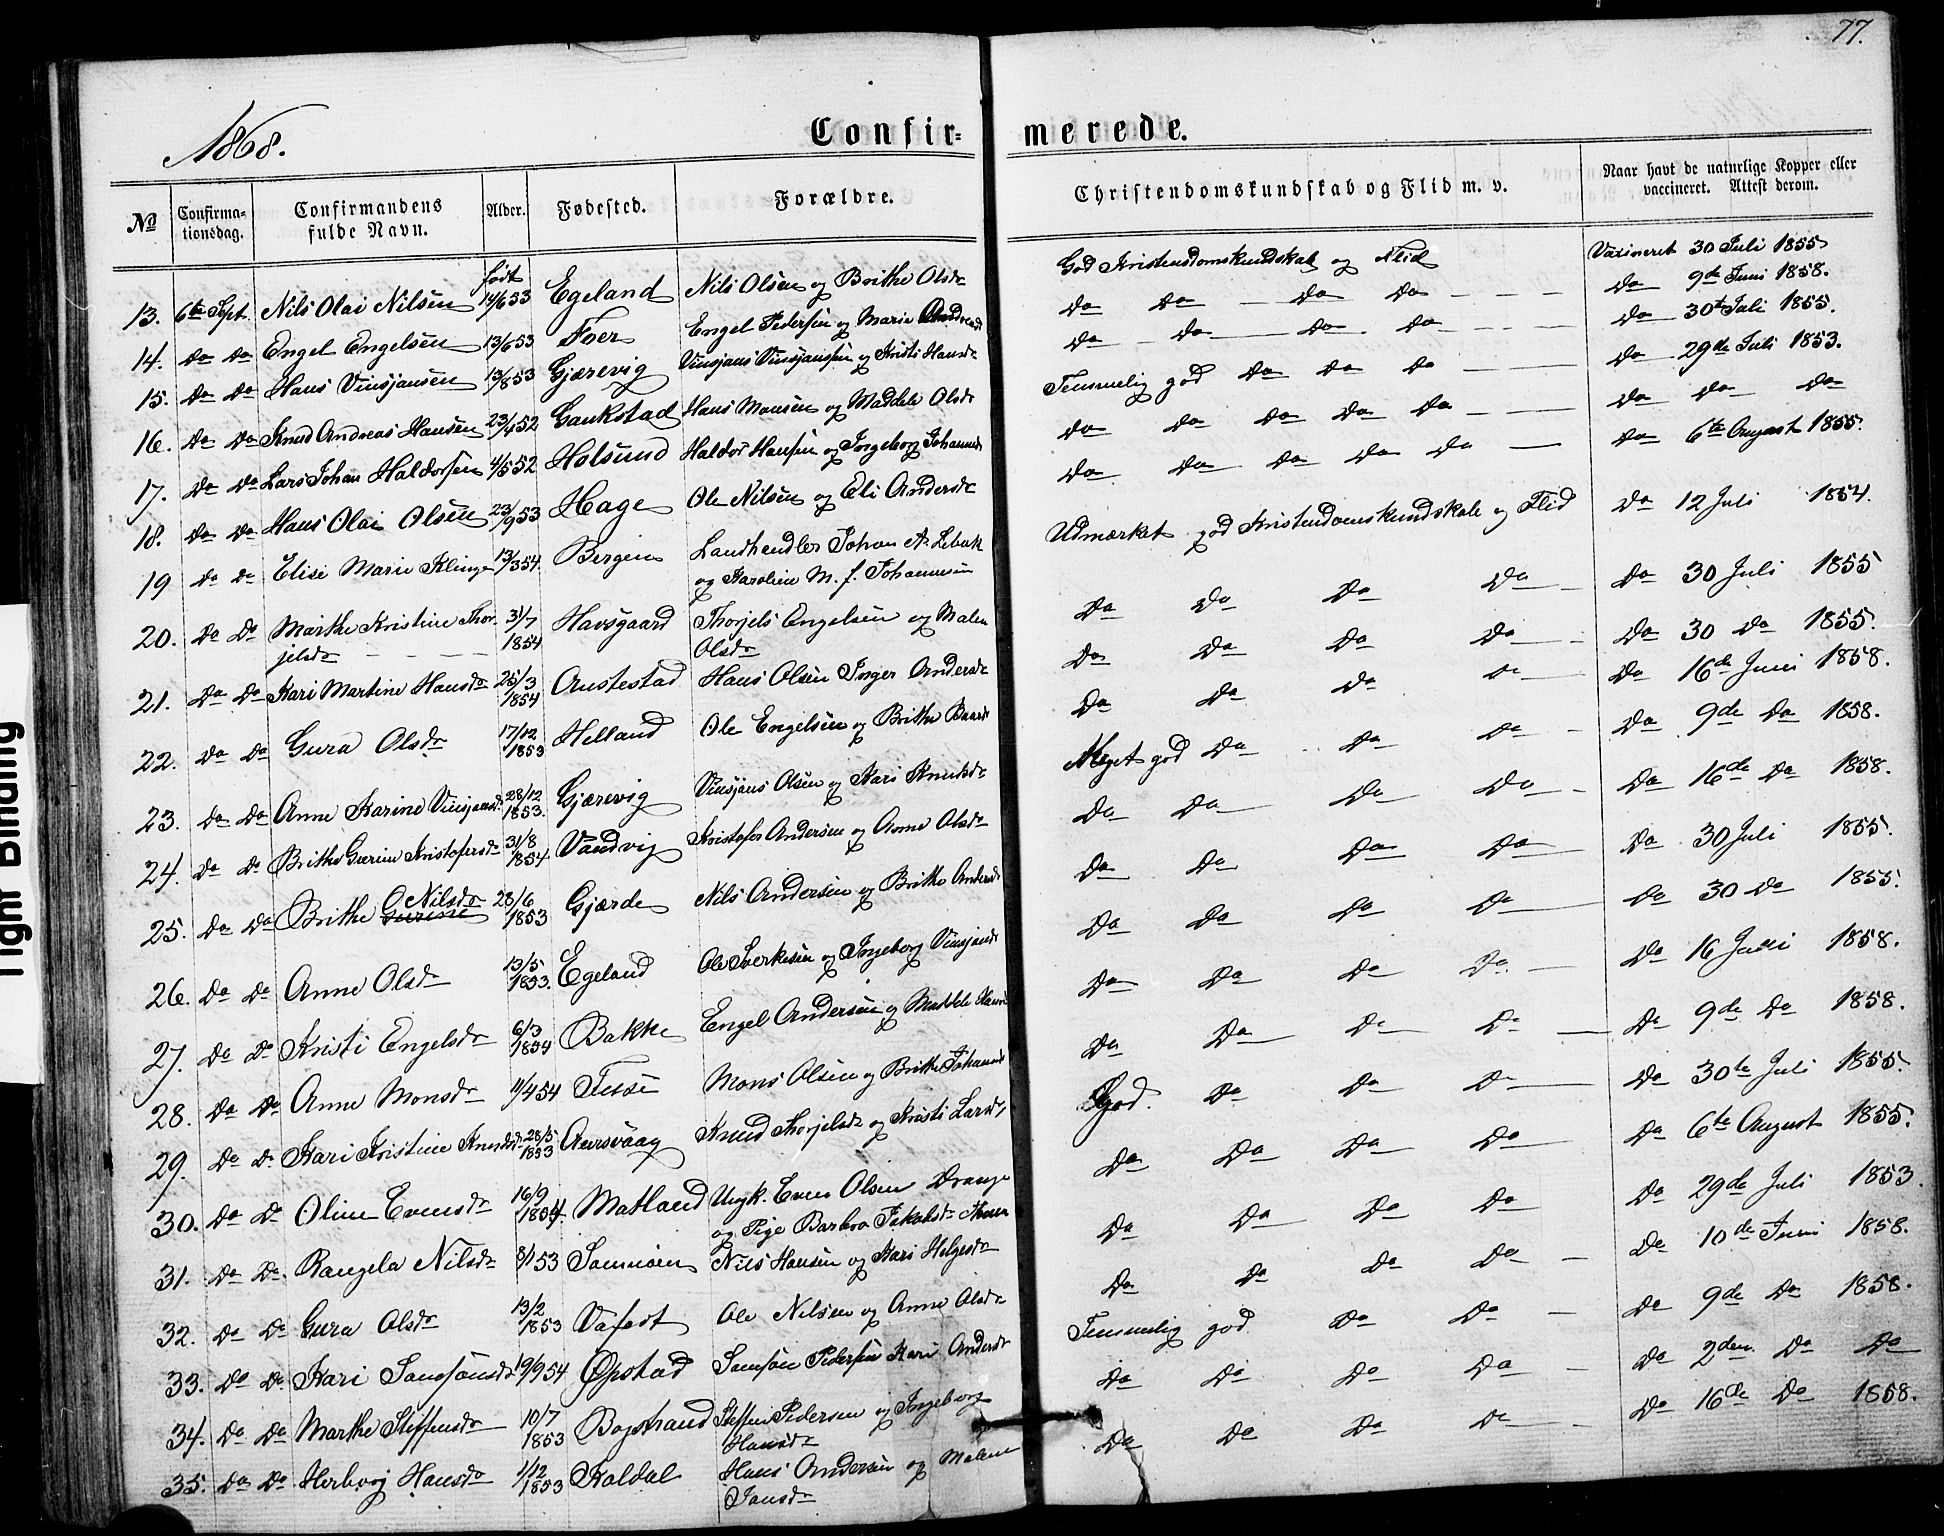 77.
1868.
Confir- merede.
No Confirma-tionsdag. Confirmandens fulde Navn. Alder. Fødested. Forældre. Christendomskundskab og Flid m. v. Naar havt de naturlige Kopper eller vaccineret. Attest derom.
født
13. 6te Sept. Nils Olai Nilsen 14/6 53 Egeland Nils Olsen og Brithe Olsdr God Kristendomskundskab og Flid Vaxineret 30 Juli 1855
14. Do Do Engel Engelsen 13/6 53 Foer Engel Pedersen og Marie Do Do Do Do Do 9de Juni 1858.
15. Do Do Hans Vinsjansen 13/8 53 Gjærevig Vinsjans Vinsjansen og Kristi Hansdr Do Do Do Do Do 30te Juli 1855.
16. Do Do Knud Andreas Hansen 23/4 52 Gaukstad Hans Monsen og Maddele Olsdr Temmelig god Do Do Do Do 29de Juli 1853.
17. Do Do Lars Johan Haldorsen 4/5 52 Holsund Haldor Hansen og Ingeborg Johannesdr Do Do Do Do Do Do Do Do
18. Do Do Hans Olai Olsen 23/9 53 Hage Ole Nilsen og Eli Andersdr Do Do Do Do Do Do 6te August 1855.
19 Do Do Elise Marie Klinge 13/3 54. Bergen Landhendler Johan A. Lebak
og Karoline M. f. Johannesen Udmærket god Kristendomskundskab og Flid Do 12 Juli 1854.
20. Do Do Marthe Kristine Thor- 31/7 Havsgaard Thorjels Engelsen og Malene Do Do Do Do Do 30 Juli 1855
jelsdr 1854 Olsdr
21. Do Do Kari Martine Hansdr 25/3 1854 Austestad Hans Olsen Inger Andersdr Do Do Do Do Do 30 Do 1855.
22. Do Do Gura Olsdr 17/12 1853 Helland Ole Engelsen og Brithe Baardsdr Do Do Do Do Do 16de Juni 1858.
23. Do Do Anne Karine Vinsjansdr 28/12 1853. Gjærevig Vinsjans Olsen og Kari Knudsdr Meget god Do Do Do Do 9de Do 1858.
24. Do Do Brithe Gurine Kristofersdr 31/8 1854 Vandvig Kristofer Andersen og Anne Olsdr Do Do Do Do Do 16de Do 1858.
25. Do Do Brithe Gurine Nilsdr 28/6 1853 Gjærde Nils Andersen og Brithe Andersdr Do Do Do Do Do 30 Juli 1855.
26. Do Do Anne Olsdr 13/5 1853. Egeland Ole Sverkesen og Ingeborg Vinsjansdr Do Do Do Do Do 30 Do 1855.
27. Do Do Kristi Engelsdr 6/3 1854 Bakke Engel Andersen og Maddele Hansdr Do Do Do Do Do 16 Juni 1858.
28. Do Do Anne Monsdr 11/4 54 Mons Olsen og Brithe Johannesdr Do Do Do Do Do 9de Do 1858.
29. Do Do Kari Kristine Knudsdr 28/5 1853 Aarsvaag Knud Thorjelsen og Kristi Larsdr God. Do Do Do Do 30te Juli 1855.
30. Do Do Oline Evensdr 16/9 1854. Matland Ungk. Even Olsen Drange
og Pige Barbro Jakobsdr Do Do Do Do Do 6te August 1855.
31. Do Do Rangela Nilsdr 8/1 53 Nils Hansen og Kari Helgesdr Do Do Do Do Do 29de Juli 1853.
32. Do Do Gura Olsdr 13/2 1853 Ole Nilsen og Anne Olsdr Do Do Do Do Do 10de Juni 1858.
33. Do Do Kari Samsonsdr 19/9 54 Øpstad Samson Pedersen Kari Andersdr Temmelig god. Do Do Do 9de Do 1858.
34. Do Do Marthe Steffensdr 10/7 1853 Bogstrand Steffen Pedersen og Ingeborg
Hansdr Do Do Do Do Do 2den Do Do
35. Do Do Herborg Hansdr 1/12 1853 Koldal Hans Andersen og Malene
Jansdr Do Do Do Do Do 16de Do 1858.
Tight Binding